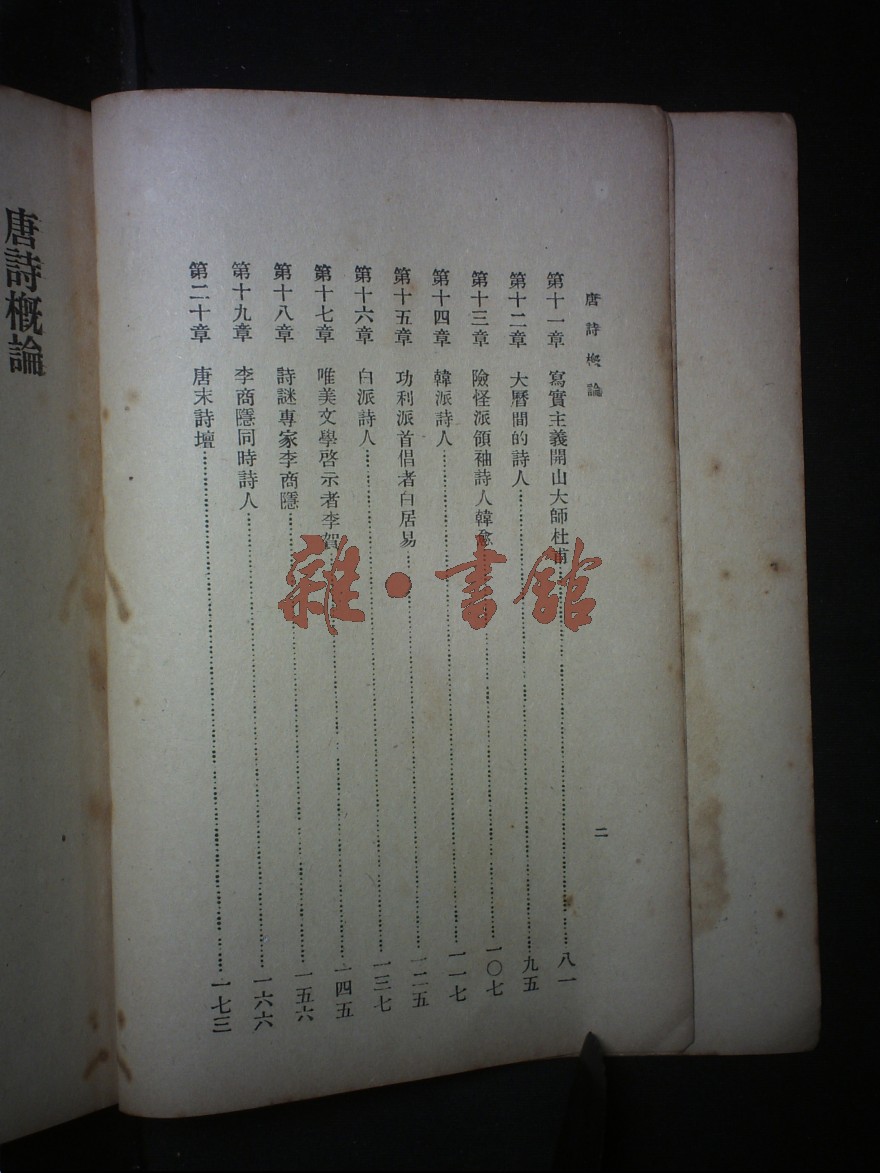 唐詩概論
二
第十一章　寫實主義開山大師杜甫……八一
第十二章　大曆間的詩人……九五
第十三章　險怪派領袖詩人韓愈……一〇七
第十四章　韓派詩人……一一七
第十五章　功利派首倡者白居易……一二五
第十六章　白派詩人……一三七
第十七章　唯美文學啓示者李賀……一四五
第十八章　詩謎專家李商隱……一五六
第十九章　李商隱同時詩人……一六六
第二十章　唐末詩壇……一七三
唐詩概論
雜·書館